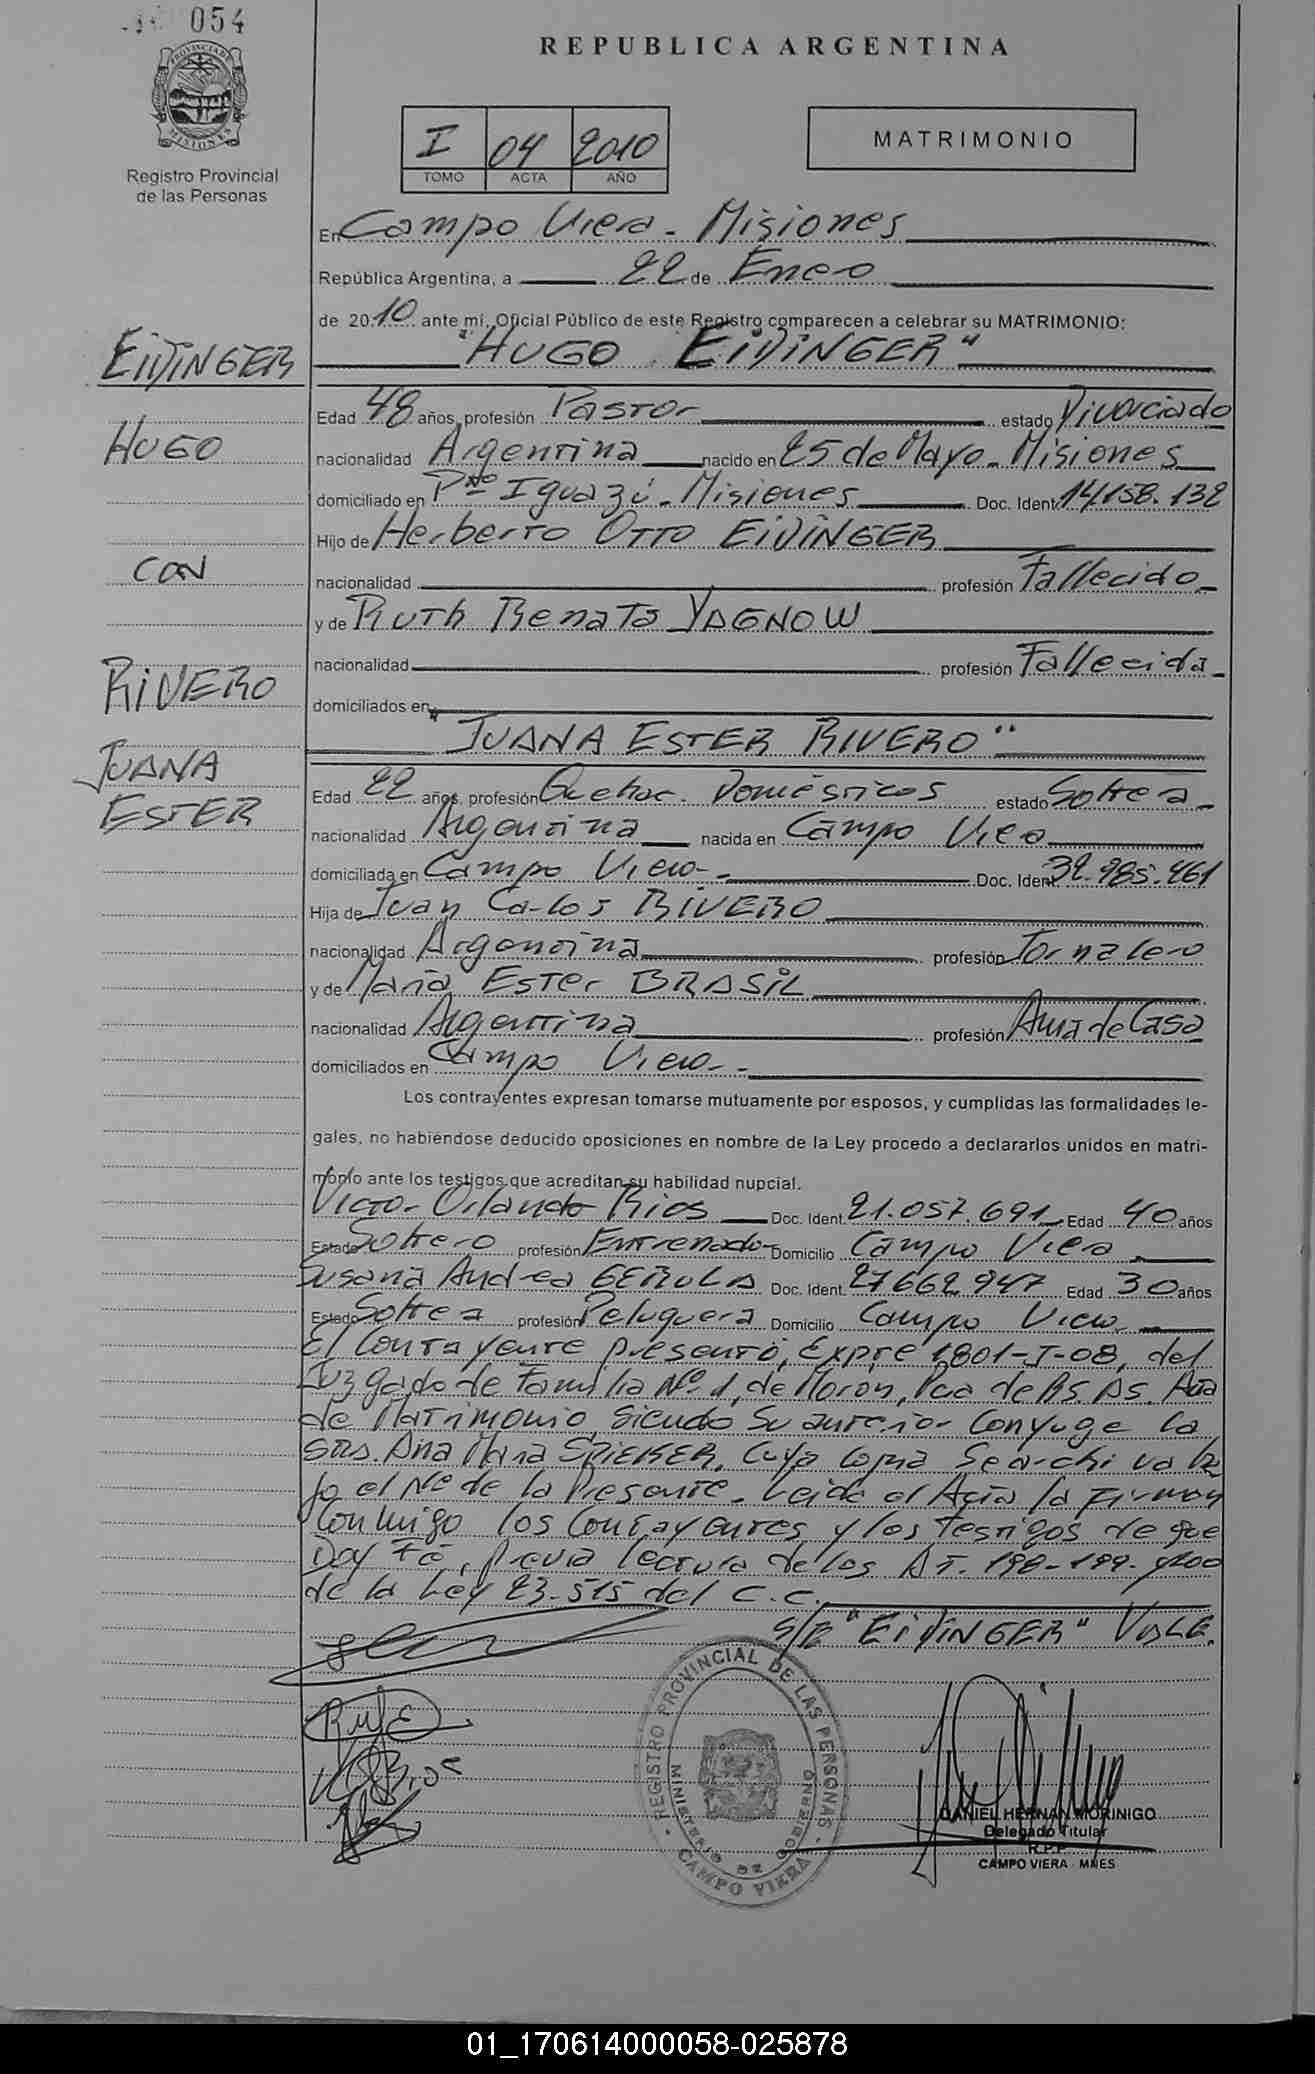 054
PROVINCIA DE MISIONES
Registro Provincial
de las Personas
REPUBLICA ARGENTINA
I 04 2010
TOMO ACTA AÑO
MATRIMONIO
En Campo Viera - Misiones
República Argentina, a 22 de Enero
de 2010 ante mí, Oficial Público de este Registro comparecen a celebrar su MATRIMONIO:
"HUGO EIDINGER"
EIDINGER
HUGO
CON
RIVERO
JUANA
ESTER
Edad 48 años, profesión Pastor estado Divorciado
nacionalidad Argentina nacido en 25 de Mayo - Misiones
domiciliado en Pto Iguazú - Misiones Doc. Ident. 14.158.132
Hijo de Herberto Otto EIDINGER
nacionalidad profesión Fallecido
y de Ruth Renata YAGNOW
nacionalidad profesión Fallecida
domiciliados en
"JUANA ESTER RIVERO"
Edad 22 años, profesión Quehac. Domésticos estado Soltera
nacionalidad Argentina nacida en Campo Viera
domiciliada en Campo Viera Doc. Ident. 32.985.461
Hija de Juan Carlos RIVERO
nacionalidad Argentina profesión Jornalero
y de María Ester BRASIL
nacionalidad Argentina profesión Ama de Casa
domiciliados en Campo Viera
Los contrayentes expresan tomarse mutuamente por esposos, y cumplidas las formalidades le-
gales, no habiéndose deducido oposiciones en nombre de la Ley procedo a declararlos unidos en matri-
monio ante los testigos que acreditan su habilidad nupcial.
Victor Orlando Rios Doc. Ident. 21.057.691 Edad 40 años
Estado Soltero profesión Entrenador Domicilio Campo Viera
Susana Andrea GEROLA Doc. Ident. 27662947 Edad 30 años
Estado Soltera profesión Peluquera Domicilio Campo Viera
El Contrayente presentó, Expte 1801-J-08, del
Juzgado de Familia Nº 1, de Morón, Pcia de Bs. As. Acta
de Matrimonio, siendo su anterior Conyuge la
Sra. Ana Maria SPIEKER, Cuya copia Se archiva ba
jo el Nº de la Presente. Leida el Acta la Firman
Conmigo los Contrayentes y los Testigos de que
Doy Fé, previa lectura de los AT. 198-199 y 200
de la Ley 23.515 del C.C.
S/R "EIDINGER" VALE.
REGISTRO PROVINCIAL DE LAS PERSONAS
MINISTERIO DE GOBIERNO
CAMPO VIERA
DANIEL HERNAN MORINIGO
Delegado Titular
R.P.P.
CAMPO VIERA - MNES
01_170614000058-025878